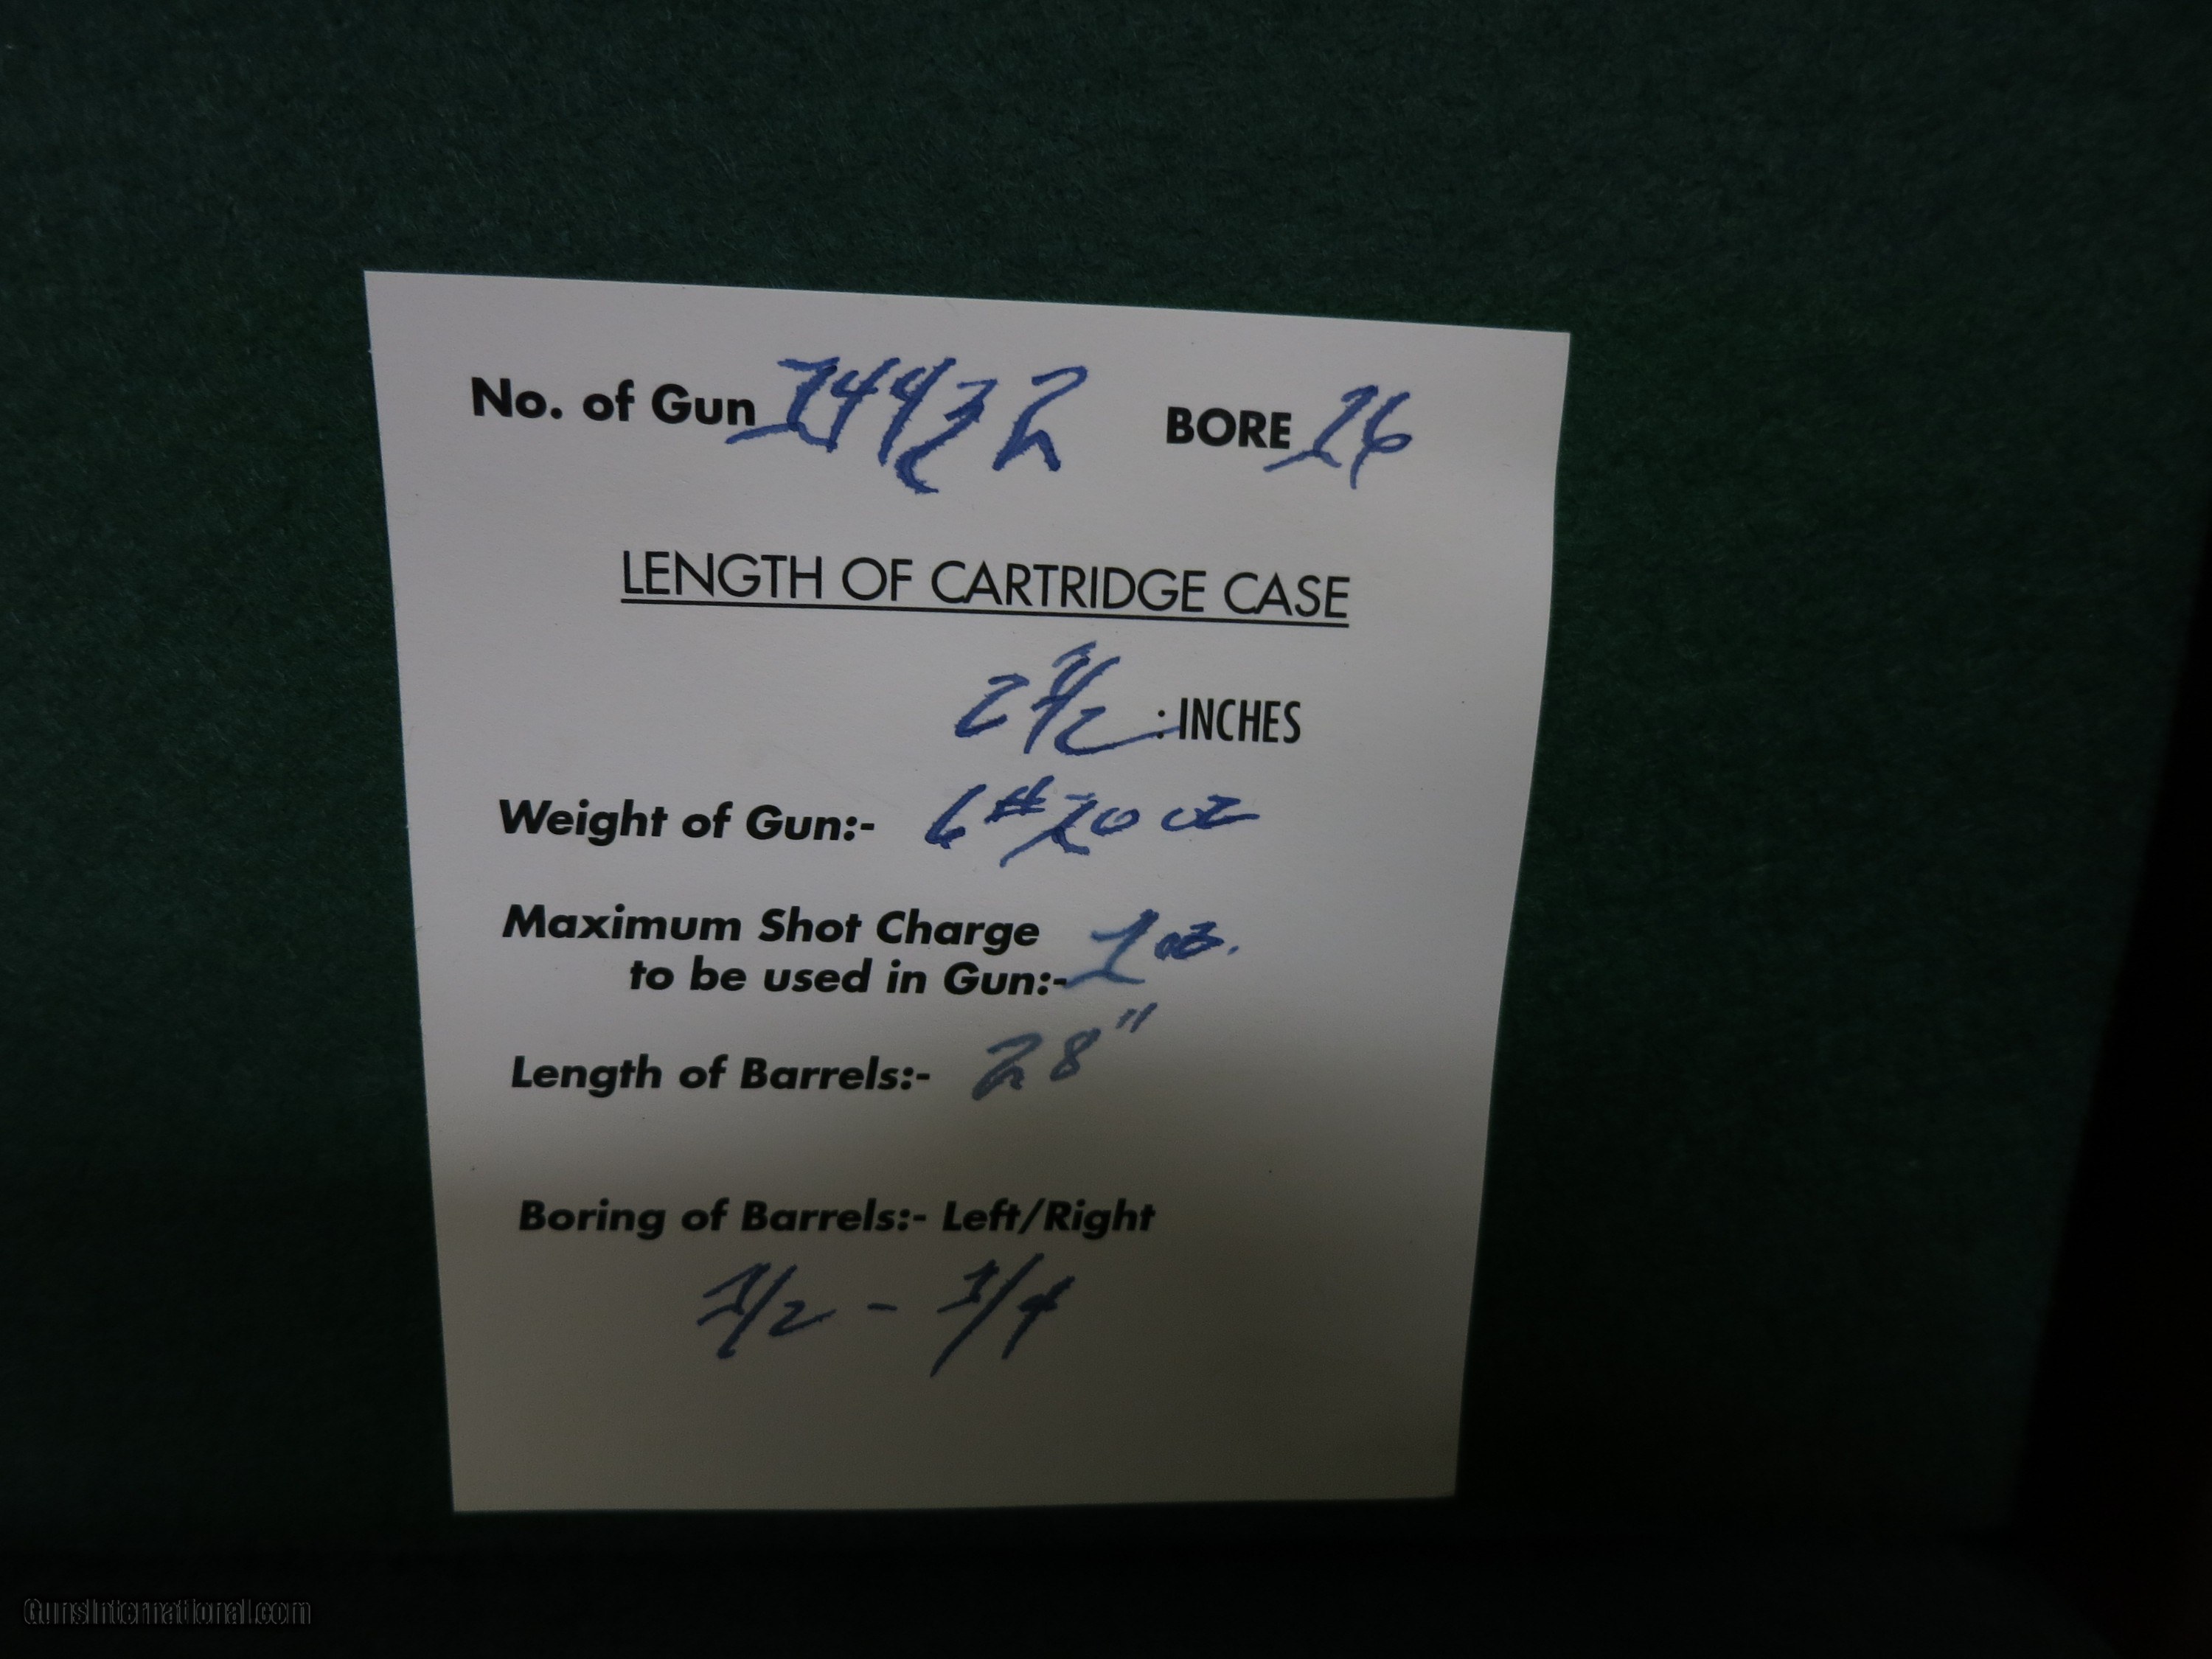 No. of Gun 14432 BORE 16
LENGTH OF CARTRIDGE CASE
2 1/2 : INCHES
Weight of Gun:- 6# 10 oz
Maximum Shot Charge 1 oz.
to be used in Gun:-
Length of Barrels:- 28"
Boring of Barrels:- Left/Right
1/2 - 1/4
GunsInternational.com